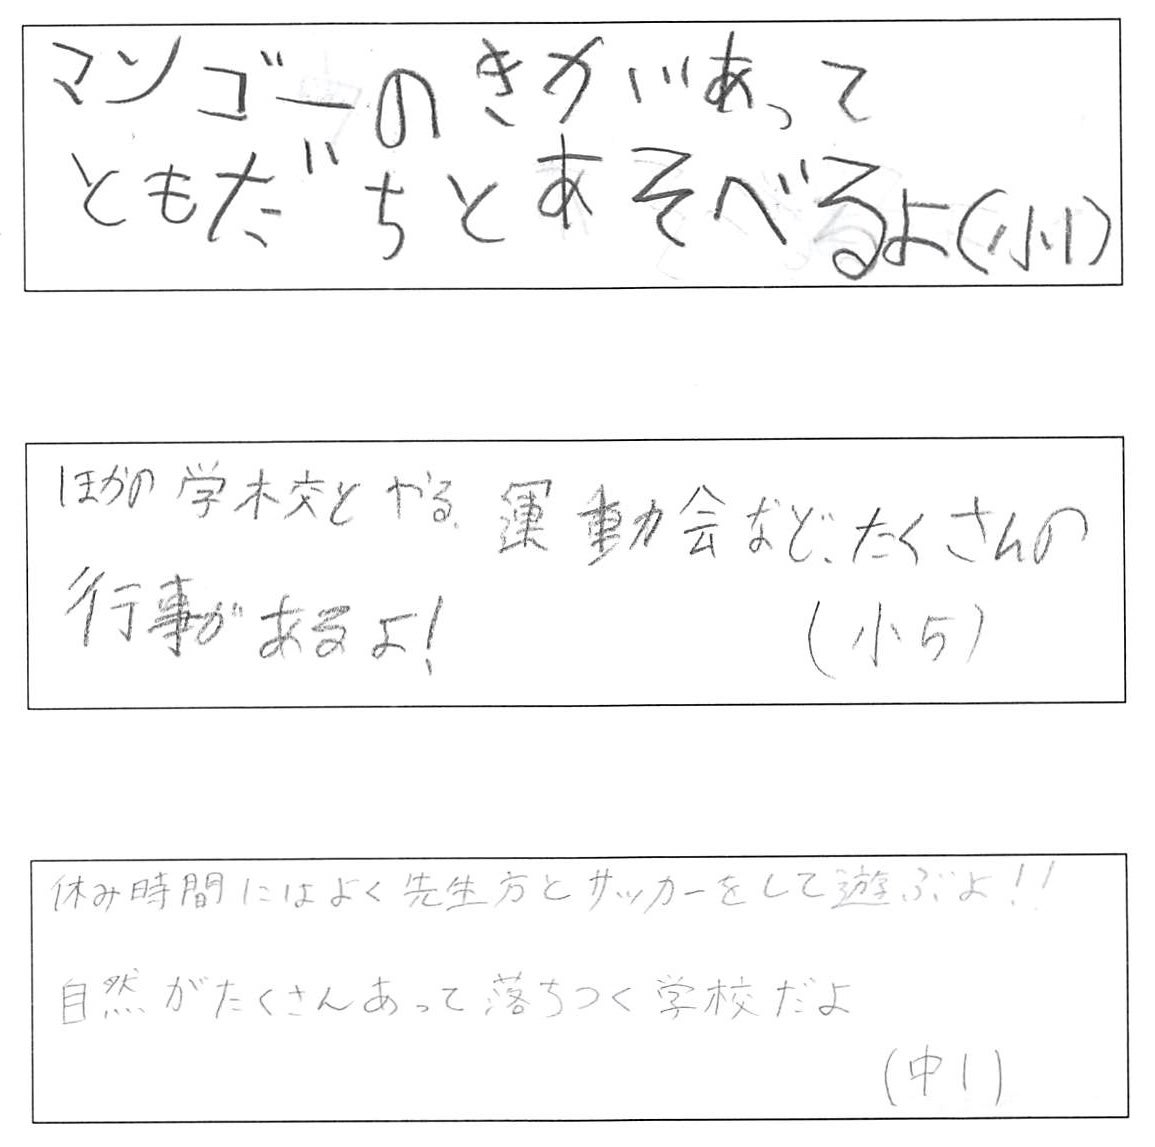 マンゴーのきがいあって
ともだちとあそべるよ(小1)
ほかの学校とやる運動会など、たくさんの
行事があるよ!
(小5)
休み時間にはよく先生方とサッカーをして遊ぶよ!!
自然がたくさんあって落ちつく学校だよ
(中1)